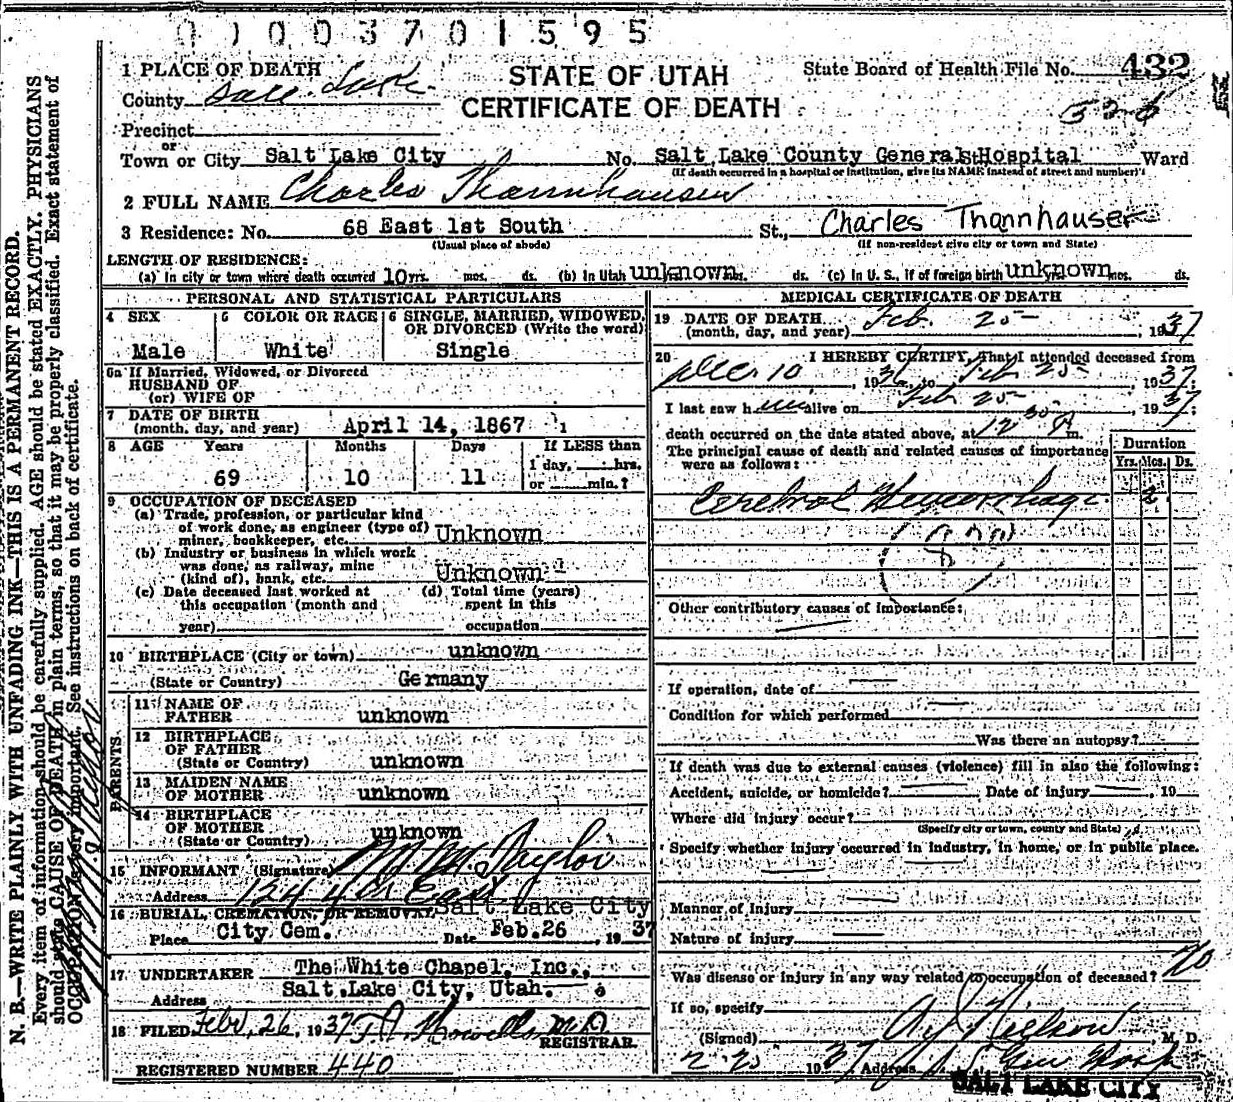 0 1 0 0 3 7 0 1 5 9 5
1 PLACE OF DEATH
County Salt Lake
STATE OF UTAH
CERTIFICATE OF DEATH
State Board of Health File No. 432
526
Precinct
or
Town or City Salt Lake City No. Salt Lake County General Hospital St. Ward
(If death occurred in a hospital or institution, give its NAME instead of street and number)
2 FULL NAME Charles Thannhauser
3 Residence: No. 68 East 1st South St., Charles Thannhauser
(Usual place of abode) (If non-resident give city or town and State)
LENGTH OF RESIDENCE:
(a) In city or town where death occurred 10 yrs. mos. ds. (b) In Utah unknown mos. ds. (c) In U. S., if of foreign birth unknown mos. ds.
PERSONAL AND STATISTICAL PARTICULARS
4 SEX
Male
5 COLOR OR RACE
White
6 SINGLE, MARRIED, WIDOWED,
OR DIVORCED (Write the word)
Single
6a If Married, Widowed, or Divorced
HUSBAND OF
(or) WIFE OF
7 DATE OF BIRTH
(month, day, and year) April 14, 1867
8 AGE Years Months Days If LESS than
69 10 11 1 day, hrs.
or min.?
9 OCCUPATION OF DECEASED
(a) Trade, profession, or particular kind
of work done, as engineer (type of)
miner, bookkeeper, etc. Unknown
(b) Industry or business in which work
was done, as railway, mine
(kind of), bank, etc. Unknown
(c) Date deceased last worked at
this occupation (month and
year)
(d) Total time (years)
spent in this
occupation
10 BIRTHPLACE (City or town) unknown
(State or Country) Germany
PARENTS
11 NAME OF
FATHER unknown
12 BIRTHPLACE
OF FATHER
(State or Country) unknown
13 MAIDEN NAME
OF MOTHER unknown
14 BIRTHPLACE
OF MOTHER
(State or Country) unknown
15 INFORMANT (Signature) M. M. Taylor
Address 124 4th East
16 BURIAL, CREMATION, OR REMOVAL Salt Lake City
Place City Cem. Date Feb. 26, 1937
17 UNDERTAKER The White Chapel, Inc.,
Address Salt Lake City, Utah.
18 FILED Feby. 26, 1937 M.D.
REGISTRAR.
REGISTERED NUMBER 440
MEDICAL CERTIFICATE OF DEATH
19 DATE OF DEATH
(month, day, and year) Feb. 25 1937
20 I HEREBY CERTIFY, That I attended deceased from
Dec. 10, 1936, to Feb 25, 1937;
I last saw h im alive on Feb 25, 1937;
death occurred on the date stated above, at 12 30 P m.
The principal cause of death and related causes of importance
were as follows:
Duration
Yrs. Mos. Ds.
Cerebral Hemorrhage 2
Other contributory causes of importance:
If operation, date of
Condition for which performed
Was there an autopsy?
If death was due to external causes (violence) fill in also the following:
Accident, suicide, or homicide? Date of injury , 19
Where did injury occur?
(Specify city or town, county and State)
Specify whether injury occurred in industry, in home, or in public place.
Manner of injury
Nature of injury
Was disease or injury in any way related to occupation of deceased? No
If so, specify
(Signed) A. J. Nielson, M. D.
2-25 1937 Address Gen Hosp
SALT LAKE CITY
N. B.—WRITE PLAINLY WITH UNFADING INK—THIS IS A PERMANENT RECORD.
Every item of information should be carefully supplied. AGE should be stated EXACTLY. PHYSICIANS
should state CAUSE OF DEATH in plain terms, so that it may be properly classified. Exact statement of
OCCUPATION is very important. See instructions on back of certificate.